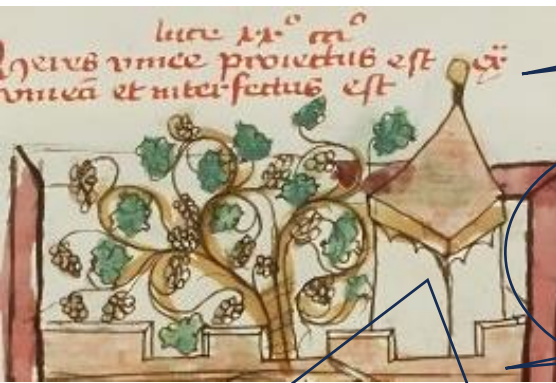 luce xx° cᵒ
heres vinee proiectus est ex̄
vineā et interfectus est